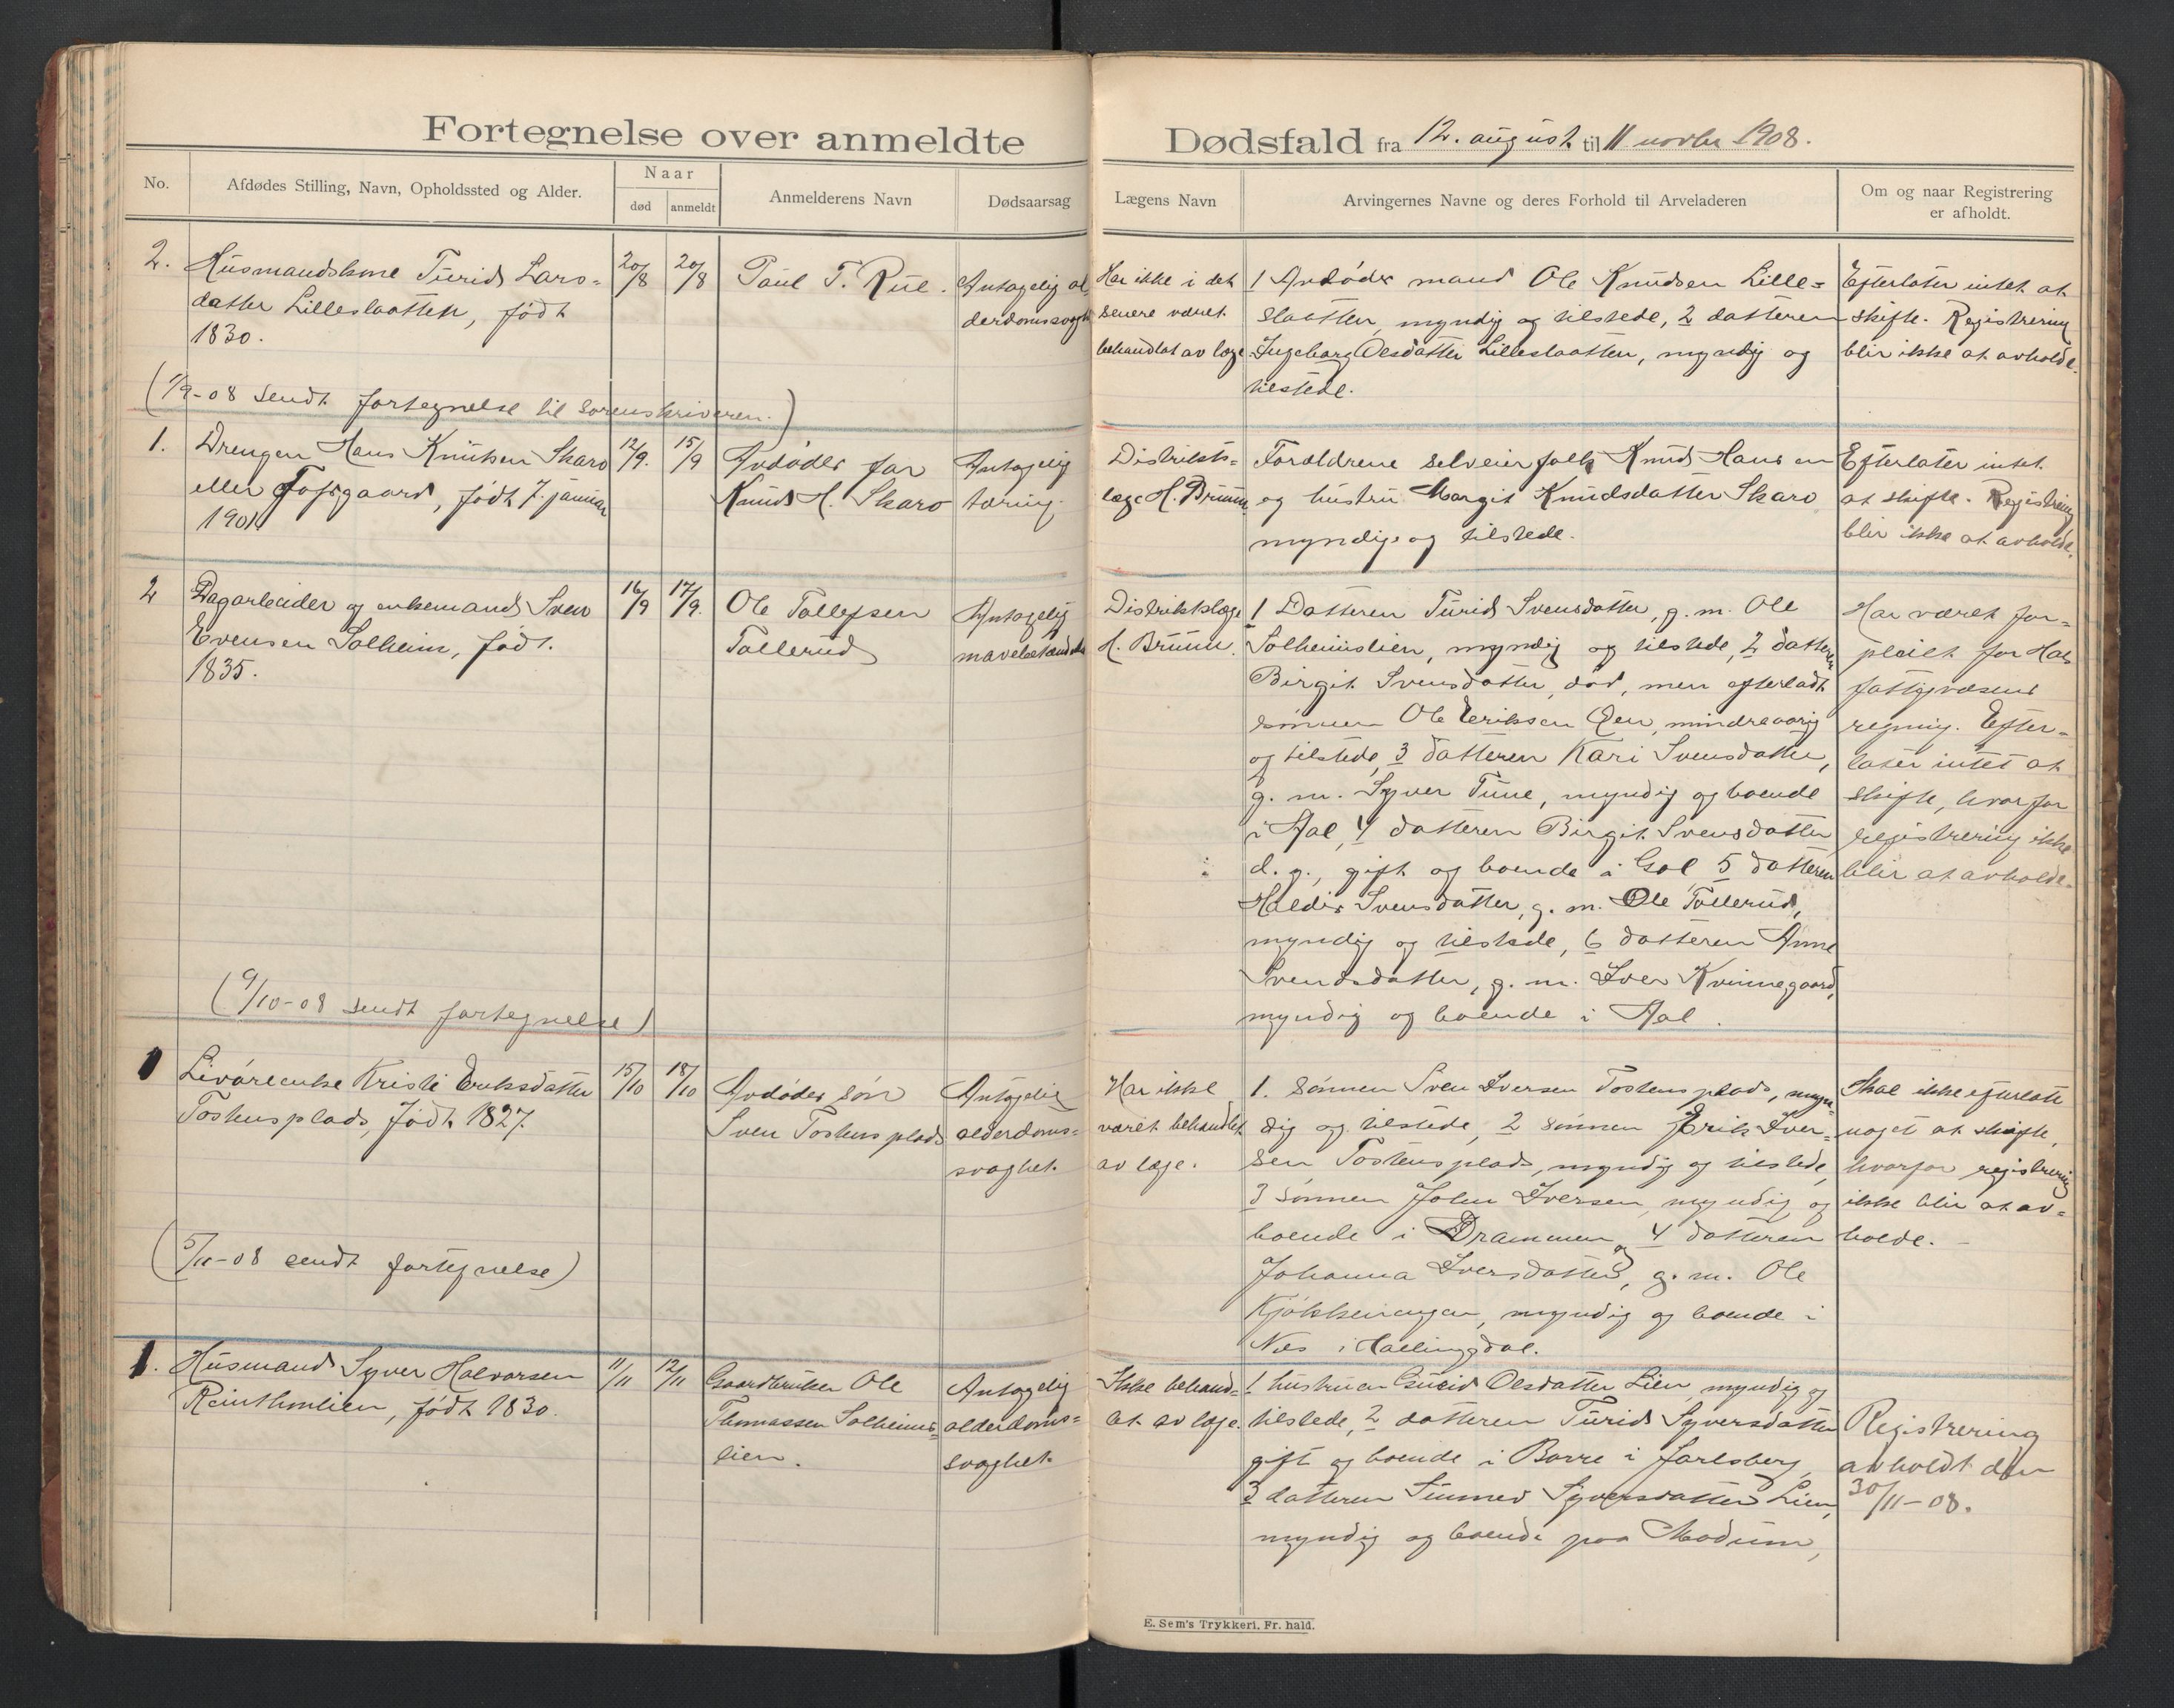 Fortegnelse over anmeldte Dødsfald fra 12. august til 11 novbr 1908.
No.
Afdødes Stilling, Navn, Opholdssted og Alder.
Naar
død
anmeldt
Anmelderens Navn
Dødsaarsag
Lægens Navn
Arvingernes Navne og deres Forhold til Arveladeren
Om og naar Registrering
er afholdt.
2.
Husmandskone Turid Lars-
datter Lilleslaatten, født
1830.
20/8
20/8
Paul T. Rue.
Antagelig al-
derdomssvagh
Har ikke i det
senere været
behandlet av læge
1 Avdødes mand Ole Knudsen Lille-
slaatten, myndig og tilstede, 2 datteren
Ingeborg Olsdatter Lilleslaatten, myndig og
tilstede.
Efterlater intet at
skifte. Registrering
blir ikke at avholde.
(1/9-08 sendt fortegnelse til sorenskriveren.)
1.
Drengen Hans Knutsen Skaro
eller Tofsgaard, født 7. januar
1901
12/9.
15/9
Avdødes far
Knud H. Skaro
Antagelig
tæring.
Distrikts-
læge H. Bruun.
Forældrene selveierfolk Knud Hansen
og hustru Margit Knudsdatter Skaro
myndige og tilstede.
Efterlater intet
at skifte. Registrering
blir ikke at avholde.
2
Dagarbeider og enkemand Sven
Evensen Solheim, født.
1835.
16/9
17/9.
Ole Tollefsen
Tollerud
Antagelig
Distriktslæge
H. Bruun.
1 Datteren Turid Svensdatter, g. m. Ole
Solheimslien, myndig og tilstede, 2 datteren
Birgit Svensdatter, død, men efterladt
sønnen Ole Eriksen mindreaarig
og tilstede, 3 datteren Kari Svensdatter,
g. m. Syver Tune, myndig og boende
i Aal, 4 datteren Birgit Svensdatter
d. y., gift og boende i Gol, 5 datteren
Haldis Svensdatter, g. m. Ole Tollerud,
myndig og tilstede, 6 datteren Anne
Svendsdatter, g. m. Iver Kvinnegaard,
myndig og boende i Aal.
Har været for-
pleiet for Hols
fattigvæsens
regning. Efter-
later intet at
skifte, hvorfor
registrering ikke
blir at avholde.
(9/10-08 sendt fortegnelse)
1
Livøreenke Kristi Eriksdatter
Tostensplads, født 1827.
15/10
18/10
Avdødes søn
Sven Tostensplads
Antagelig
alderdoms-
svaghet.
Har ikke
været behandlet
av læge.
1. sønnen Sven Iversen Tostensplads, myn-
dig og tilstede, 2 sønnen Erik Iver-
sen Tostensplads, myndig og tilstede,
3 sønnen John Iversen, myndig og
boende i Drammen og 4 datteren
Johanna Iversdatter, g. m. Ole
myndig og boende i
Nes i Hallingdal.
Skal ikke efterlatt
noget at skifte,
hvorfor registrering
ikke blir at av-
holde.
(5/11-08 sendt fortegnelse)
1.
Husmand Syver Halvorsen
Reintonlien, født 1830.
11/11
12/11
Gaardbruker Ole
Thomassen Solheims-
lien.
Antagelig
alderdoms-
svaghet.
Ikke behand-
let av læge.
1 hustruen Gurid Olsdatter Lien, myndig og
tilstede, 2 datteren Turid Syversdatter
gift og boende i Borre i Jarlsberg,
3 datteren Sunnev Syversdatter Lien,
myndig og boende paa Modum,
Registrering
avholdt den
30/11-08.
E. Sem's Trykkeri. Fr. hald.